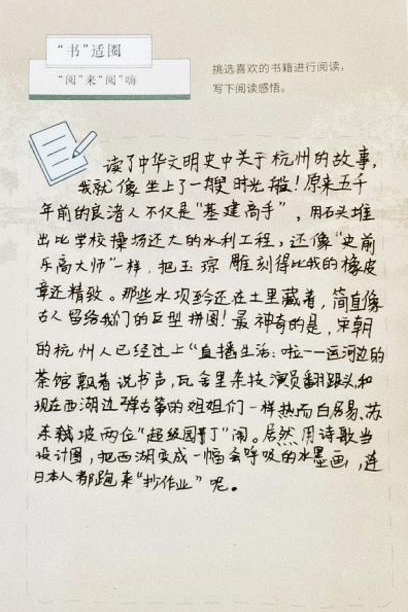 “书”适圈
“阅”来“阅”嗨
挑选喜欢的书籍进行阅读，
写下阅读感悟。
读了中华文明史中关于杭州的故事，
我就像坐上了一艘时光船！原来五千
年前的良渚人不仅是“基建高手”，用石头堆
出比学校操场还大的水利工程，还像“史前
乐高大师”一样，把玉琮雕刻得比我的橡皮
章还精致。那些水坝至今还在土里藏着，简直像
古人留给我们的巨型拼图！最神奇的是，宋朝
的杭州人已经过上“直播生活”啦——运河边的
茶馆飘着说书声，瓦舍里杂技演员翻跟头和
现在西湖边弹古筝的姐姐们一样热而白居易、苏
东坡两位“超级园丁”闹。居然用诗歌当
设计图，把西湖变成一幅会呼吸的水墨画，连
日本人都跑来“抄作业”呢。